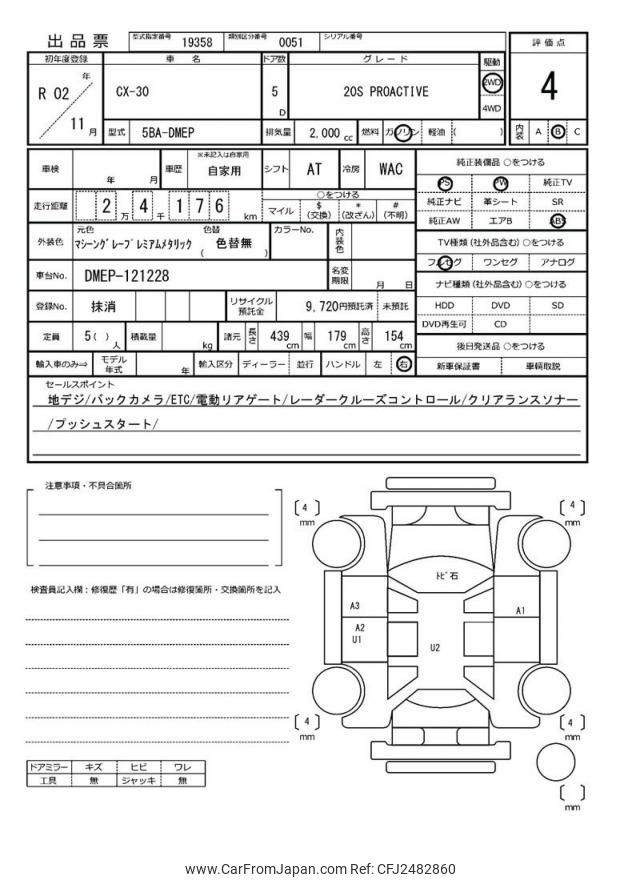 出品票
型式指定番号 19358 類別区分番号 0051 シリアル番号
初年度登録 車名 ドア数 グレード 駆動 評価点
R 02 年 11 月
CX-30 5 D 20S PROACTIVE 2WD 4WD 4
型式 5BA-DMEP 排気量 2,000 cc 燃料 ガソリン 軽油 ( ) 内装 A B C
車検 年 月 車歴 ※未記入は自家用 自家用 シフト AT 冷房 WAC
走行距離 2 万 4 千 1 7 6 km
○をつける
マイル $ (交換) * (改ざん) # (不明)
外装色 元色 マシーングレープレミアムメタリック 色替 色替無 ( ) カラーNo. 内装色
車台No. DMEP-121228 名変期限 月 日
登録No. 抹消 リサイクル預託金 9,720円預託済 未預託
定員 5 ( ) 人 積載量 kg 諸元 長さ 439 cm 幅 179 cm 高さ 154 cm
輸入車のみ⇒ モデル年式 年 輸入区分 ディーラー 並行 ハンドル 左 右
純正装備品 ○をつける
PS PW 純正TV
純正ナビ 革シート SR
純正AW エアB ABS
TV種類(社外品含む)○をつける
フルセグ ワンセグ アナログ
ナビ種類(社外品含む)○をつける
HDD DVD SD
DVD再生可 CD
後日発送品 ○をつける
新車保証書 車輌取説
セールスポイント
地デジ/バックカメラ/ETC/電動リアゲート/レーダークルーズコントロール/クリアランスソナー
/プッシュスタート/
注意事項・不具合箇所
検査員記入欄：修復歴「有」の場合は修復箇所・交換箇所を記入
[ 4 ] mm
[ 4 ] mm
トビ石
A3
A1
A2
U1
U2
[ 4 ] mm
[ 4 ] mm
[ ] mm
ドアミラー キズ ヒビ ワレ
工具 無 ジャッキ 無
www.CarFromJapan.com Ref: CFJ2482860